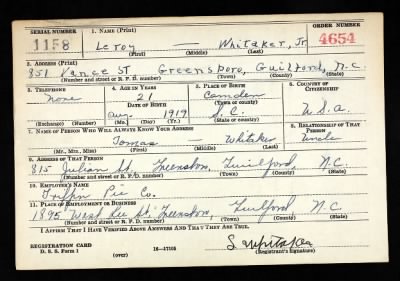 SERIAL NUMBER 1. NAME (Print) ORDER NUMBER
1158 Leroy — Whitaker, Jr. 4654
(First) (Middle) (Last)
2. ADDRESS (Print)
851 Vance St Greensboro, Guilford, N.C.
(Number and street or R. F. D. number) (Town) (County) (State)
3. TELEPHONE 4. AGE IN YEARS 5. PLACE OF BIRTH 6. COUNTRY OF CITIZENSHIP
none 21 Camden
DATE OF BIRTH (Town or county)
Aug. 1919 S.C. U.S.A.
(Exchange) (Number) (Mo.) (Day) (Yr.) (State or country)
7. NAME OF PERSON WHO WILL ALWAYS KNOW YOUR ADDRESS 8. RELATIONSHIP OF THAT PERSON
Tomas — Whitaker Uncle
(Mr., Mrs., Miss) (First) (Middle) (Last)
9. ADDRESS OF THAT PERSON
815 Julian St. Greensboro, Guilford, N.C.
(Number and street or R. F. D. number) (Town) (County) (State)
10. EMPLOYER'S NAME
Griffin Pie Co.
11. PLACE OF EMPLOYMENT OR BUSINESS
1895 West Lee St. Greensboro, Guilford N.C.
(Number and street or R. F. D. number) (Town) (County) (State)
I AFFIRM THAT I HAVE VERIFIED ABOVE ANSWERS AND THAT THEY ARE TRUE.
REGISTRATION CARD
D. S. S. Form 1 (over) 16—17105
(Registrant's signature)